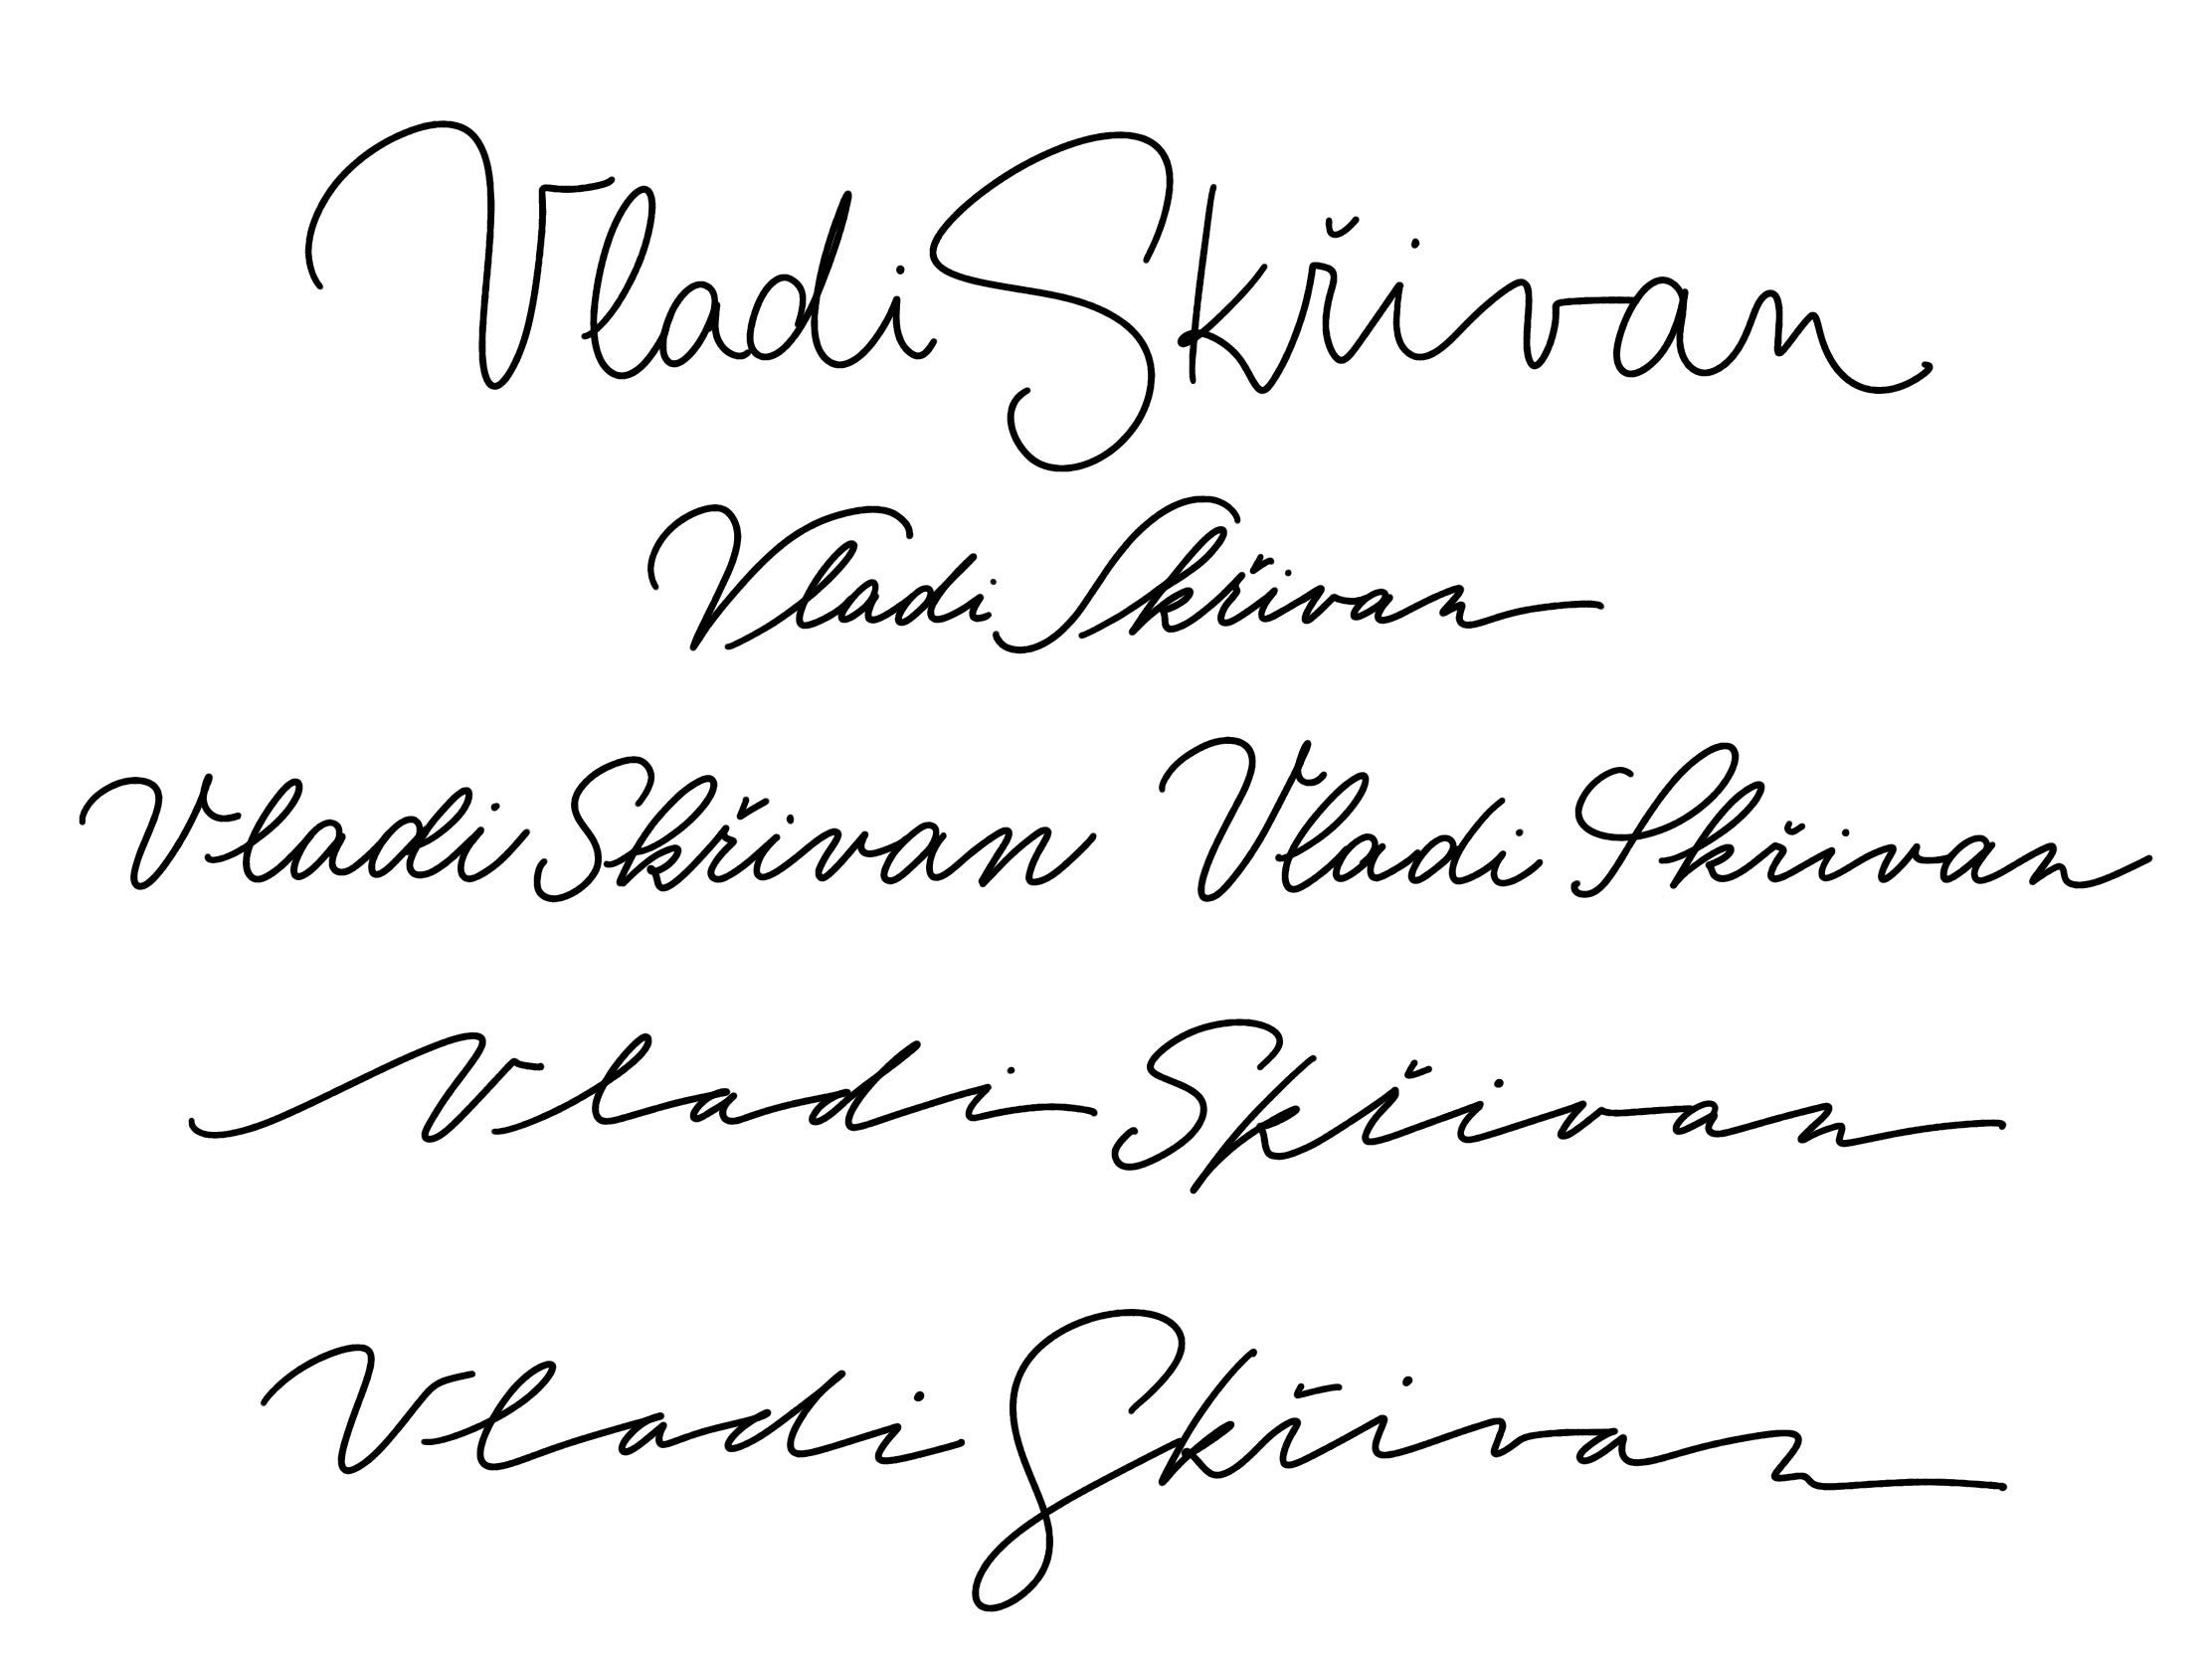 Vladi Skřivan
Vladi Skřivan
Vladi Skřivan Vladi Skřivan
Vladi Skřivan
Vladi Skřivan